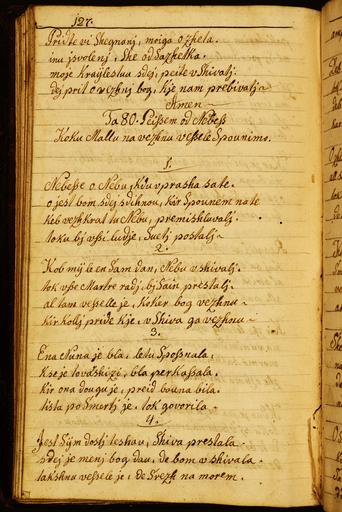 127.
Pridte vi Shegnani, moiga ozheta.
inu isvoleni, ske od Sazhetka.
moje Krajlestvu sdej, peite vshivati.
dej pril ovizhni bog, kje nam prebivati
Amen
Ta 80. Peissem od Nebess
Koku Mallu na vezhnu vesselè spounimo.
1.
Nebesse o Nebu, kdu vprasha sate.
o jest bom sdej sdihnou, kir spounem na te
keb vezhkrat tu Nebu, premishluvali.
toku bi vssi ludje, Sueti postali
2.
Kob mij le en sam dan, Nebu vshivali.
tok vsse Martre radi, bi sain prestali.
al tam vesselle je, koker bog vezhnu
kir kolij pride kje, vshiva ga vezhnu
3.
Ena Nuna je bla, letu spossnala.
Kse je tovarshizi, bla perkassala.
kir ona dougu je, preid bouna bila.
tista po Smerti je, tok govorila
4.
Jest sijm dosti teshau, shiva prestala
sdej je meni bog dau, de bom vshivala
takshnu vesselè je, de srezh na morem.